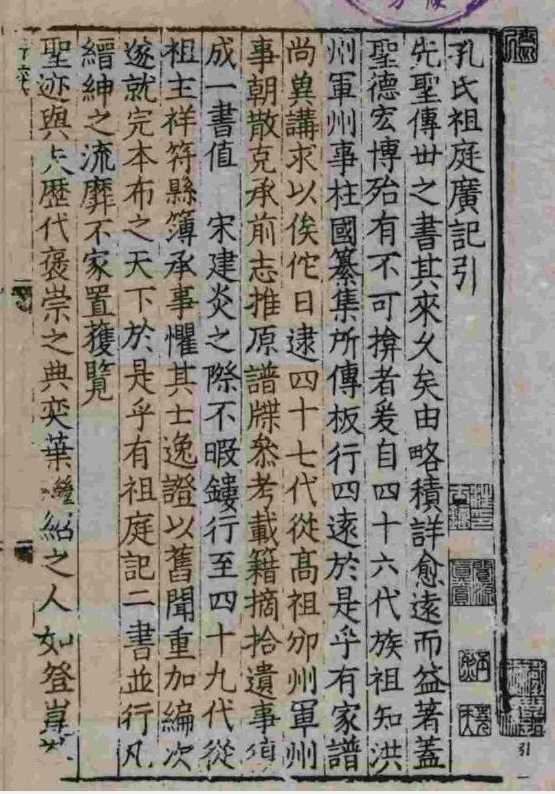 孔氏祖庭廣記引
先聖傳世之書其來久矣由略積詳愈遠而益著蓋
聖德宏博殆有不可揜者爰自四十六代族祖知洪
州軍州事柱國纂集所傳板行四遠於是乎有家譜
尚冀講求以俟佗日逮四十七代從高祖邠州軍州
事朝散克承前志推原譜牒叅考載籍摘拾遺事
成一書值 宋建炎之際不暇鏤行至四十九代從
祖主祥符縣簿承事懼其亡逸證以舊聞重加編次
遂就完本布之天下於是乎有祖庭記二書並行凡
縉紳之流靡不家置獲覽
聖迹與夫歷代褒崇之典奕葉繼紹之人如登崑
引
一